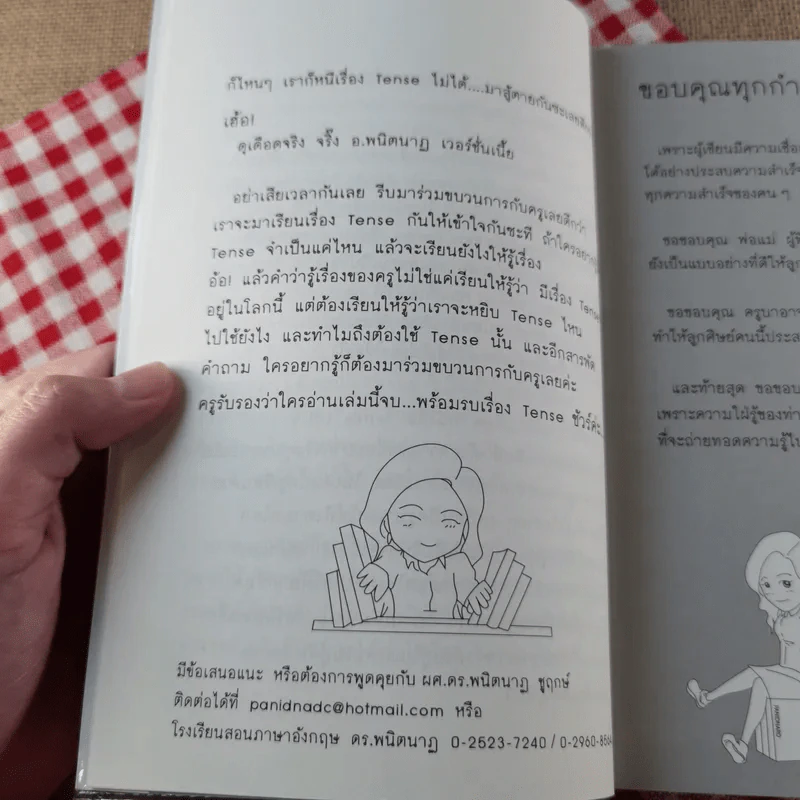 ก็ไหนๆ เราก็หนีเรื่อง Tense ไม่ได้....มาสู้ตายกันซะเลยดีก
เฮ้อ!
ดุเดือดจริง จริ๊ง อ.พนิตนาฏ เวอร์ชั่นเนี้ย
อย่าเสียเวลากันเลย รีบมาร่วมขบวนการกับครูเลยดีกว่า
เราจะมาเรียนเรื่อง Tense กันให้เข้าใจกันซะที ถ้าใครอยากรู้
Tense จำเป็นแค่ไหน แล้วจะเรียนยังไงให้รู้เรื่อง
อ้อ! แล้วคำว่ารู้เรื่องของครูไม่ใช่แค่เรียนให้รู้ว่า มีเรื่อง Tense
อยู่ในโลกนี้ แต่ต้องเรียนให้รู้ว่าเราจะหยิบ Tense ไหน
ไปใช้ยังไง และทำไมถึงต้องใช้ Tense นั้น และอีกสารพัด
คำถาม ใครอยากรู้ก็ต้องมาร่วมขบวนการกับครูเลยค่ะ
ครูรับรองว่าใครอ่านเล่มนี้จบ...พร้อมรบเรื่อง Tense ชัวร์ค่ะ
มีข้อเสนอแนะ หรือต้องการพูดคุยกับ ผศ.ดร.พนิตนาฏ ชูฤกษ์
ติดต่อได้ที่ panidnadc@hotmail.com หรือ
โรงเรียนสอนภาษาอังกฤษ ดร.พนิตนาฏ 0-2523-7240 / 0-2960-8564
ขอบคุณทุกกำ
เพราะผู้เขียนมีความเชื่อ
ได้อย่างประสบความสำเร็จ
ทุกความสำเร็จของคน ๆ
ขอขอบคุณ พ่อแม่ ผู้
ยังเป็นแบบอย่างที่ดีให้ลูก
ขอขอบคุณ ครูบาอาจ
ทำให้ลูกศิษย์คนนี้ประส
และท้ายสุด ขอขอบ
เพราะความใฝ่รู้ของท่า
ที่จะถ่ายทอดความรู้ไป